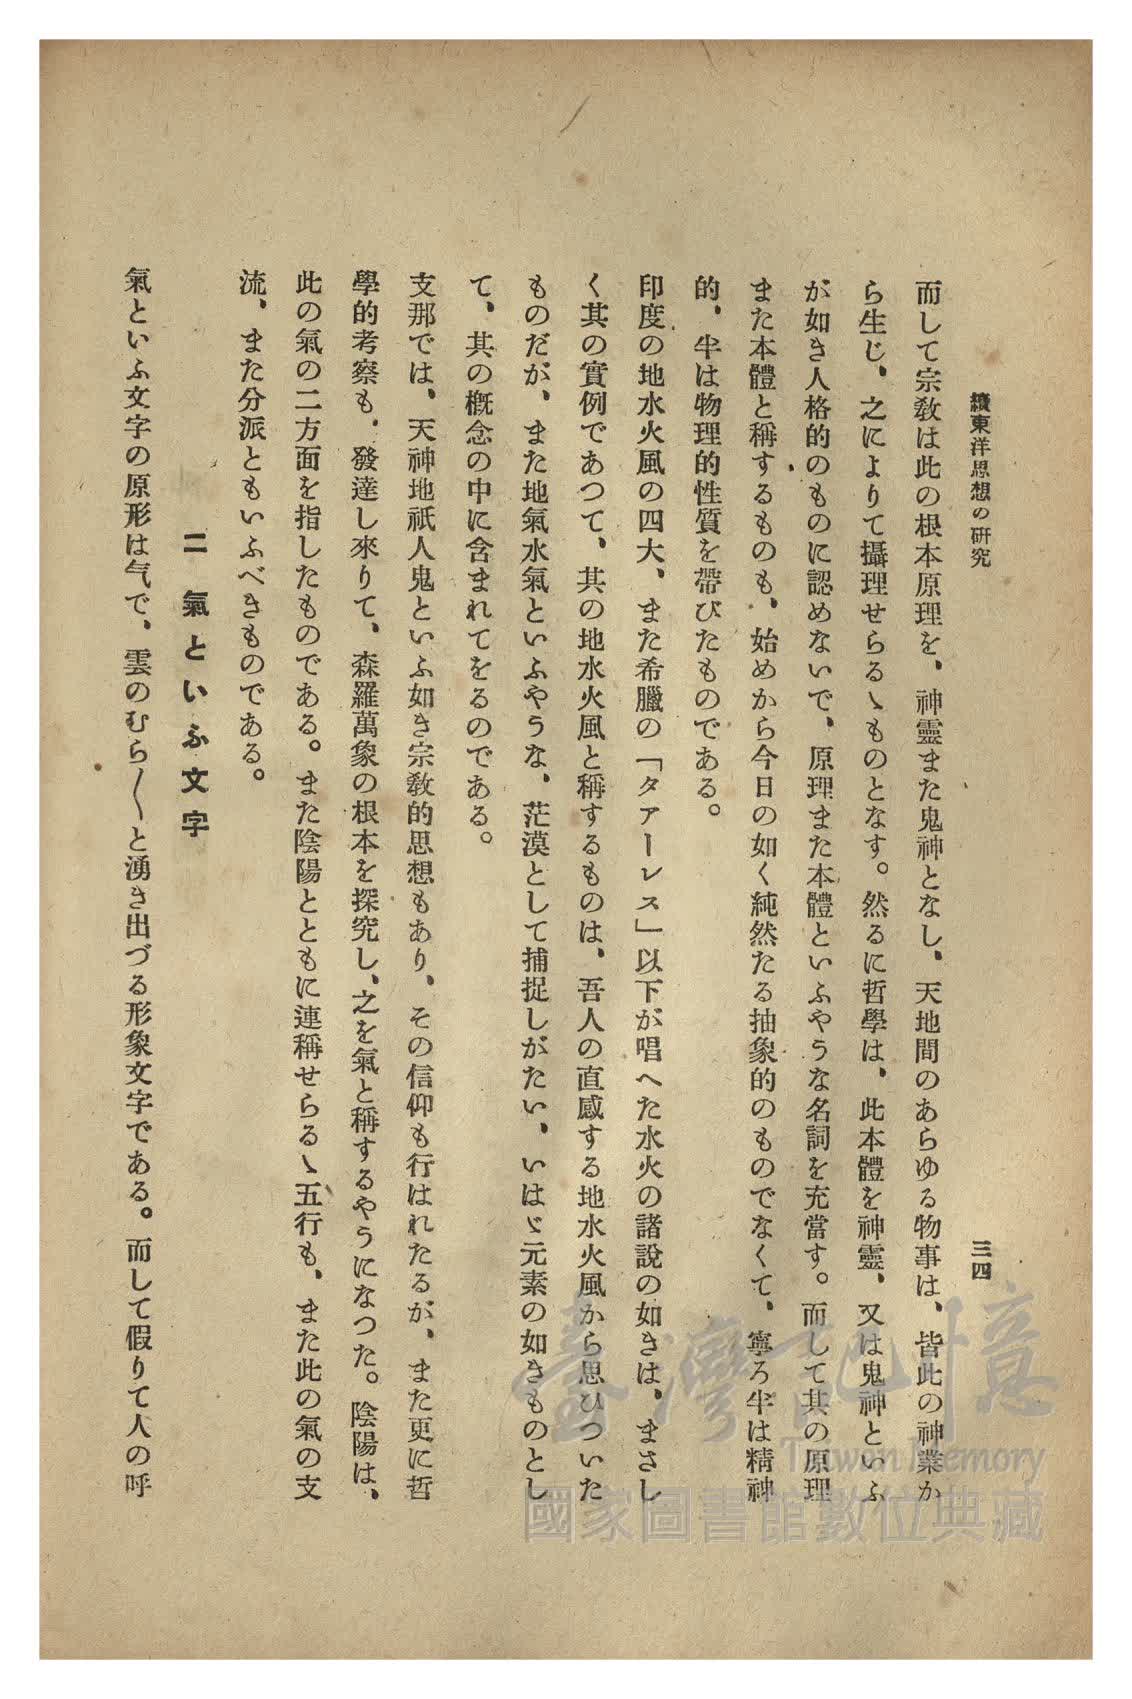 續東洋思想の研究
三四
而して宗敎は此の根本原理を、神靈また鬼神となし、天地間のあらゆる物事は、皆此の神業か
ら生じ、之によりて攝理せらるゝものとなす。然るに哲學は、此本體を神靈、又は鬼神といふ
が如き人格的のものに認めないで、原理また本體といふやうな名詞を充當す。而して其の原理
また本體と稱するものも、始めから今日の如く純然たる抽象的のものでなくて、寧ろ半は精神
的、半は物理的性質を帶びたものである。
印度の地水火風の四大、また希臘の「タアーレス」以下が唱へた水火の諸說の如きは、まさし
く其の實例であつて、其の地水火風と稱するものは、吾人の直感する地水火風から思ひついた
ものだが、また地氣水氣といふやうな、茫漠として捕捉しがたい、いはゞ元素の如きものとし
て、其の槪念の中に含まれてをるのである。
支那では、天神地祇人鬼といふ如き宗敎的思想もあり、その信仰も行はれたるが、また更に哲
學的考察も、發達し來りて、森羅萬象の根本を探究し、之を氣と稱するやうになつた。陰陽は、
此の氣の二方面を指したものである。また陰陽とともに連稱せらるゝ五行も、また此の氣の支
流、また分派ともいふべきものである。
二 氣といふ文字
氣といふ文字の原形は气で、雲のむら〳〵と湧き出づる形象文字である。而して假りて人の呼
臺灣記憶
Taiwan Memory
國家圖書館數位典藏